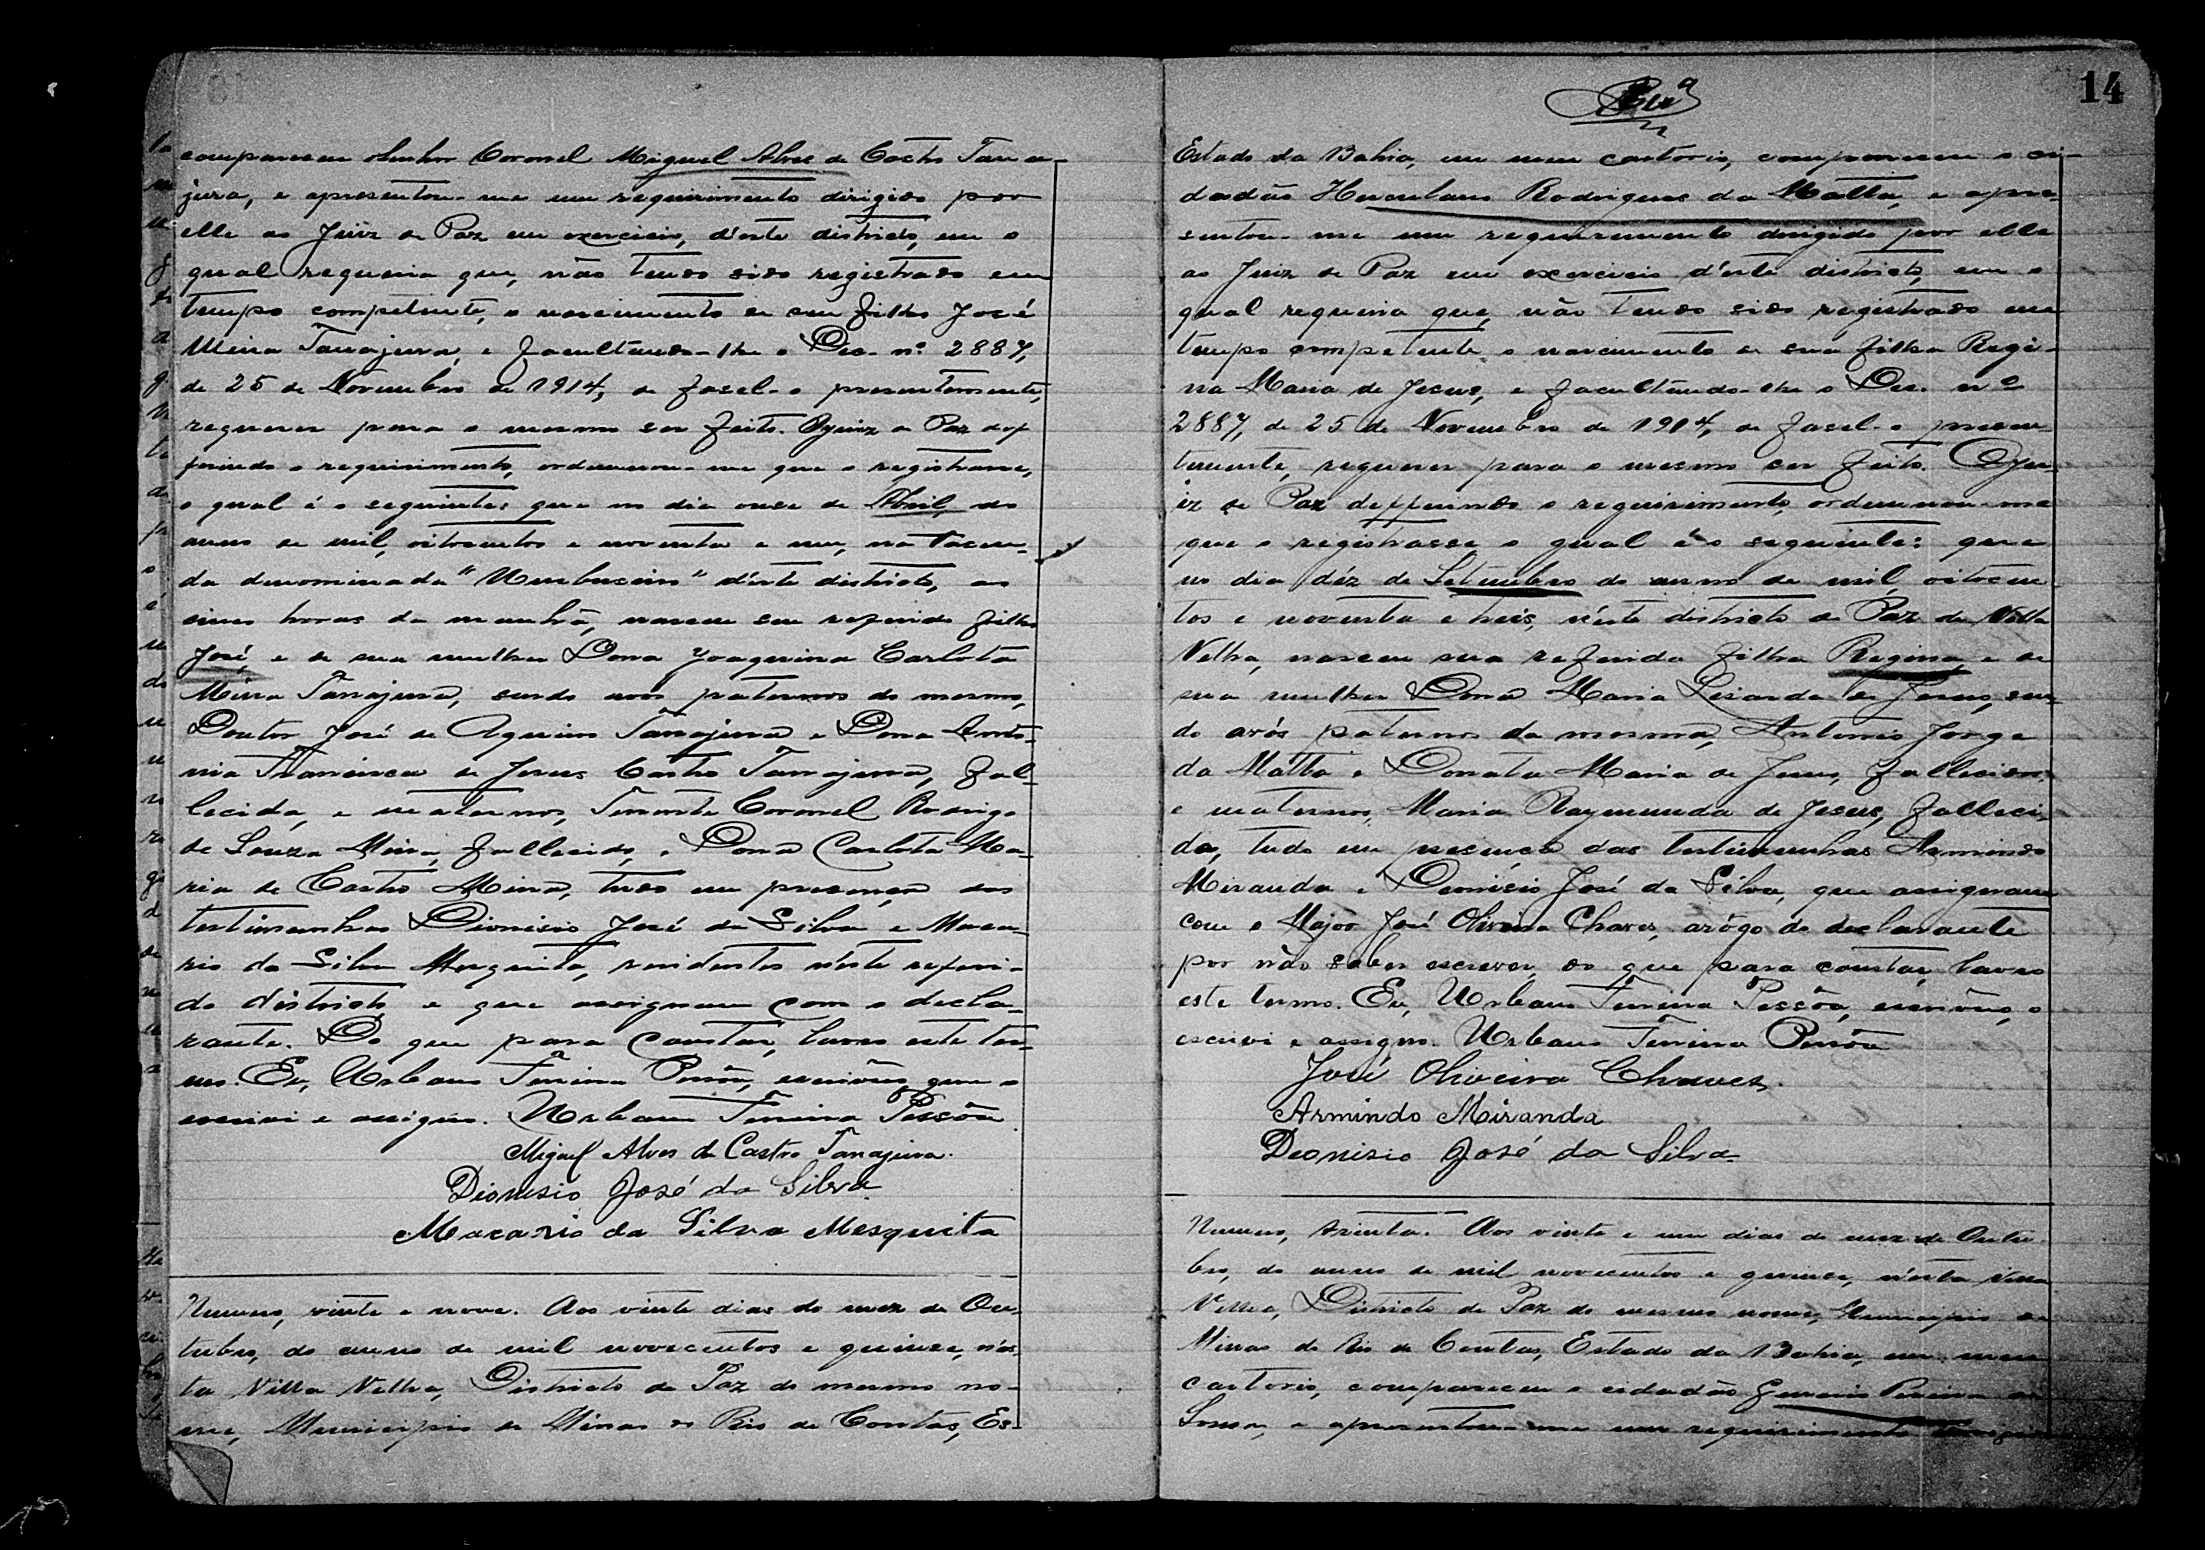 compareceu o Senhor Coronel Miguel Alves de Castro Tana-
jura, e apresentou-me um requerimento dirigido por
elle ao Juiz de Paz em exercicio, d'este districto, em o
qual requeria que, não tendo sido registrado em
tempo competente, o nascimento de seu filho José
Meira Tanajura, e facultando-lhe o Dec. nº 2887,
de 25 de Novembro de 1914, de fasel-o presentemente,
requerer para o mesmo ser feito. O Juiz de Paz def
ferindo o requirimento, ordennou-me que o registrasse,
o qual é o seguinte: que no dia onze de Abril, do
anno de mil, oitocentos e noventa e um, na Fasen-
da denominada "Umbuseiro" d'este districto, as
cinco horas da manhã, nasceu seu referido filho
José, e de sua mulher Dona Joaquina Carlota
Meira Tanajura, sendo avós paternos do mesmo,
Doutor José de Aquino Tanajura e Dona Anto-
nia Francisca de Jesus Castro Tanajura, fal-
lecida, e maternos, Tenente Coronel Rodrigo
de Souza Meira, fallecido, e Dona Carlota Ma-
ria de Castro Meira, tudo em presença das
testimunhas Dionisio José da Silva e Maca-
rio da Silva Mesquita, residentes n'este referi-
do districto, e que assignam com o decla-
rante. Do que para constar, lavro este ter-
mo. Eu, Urbano Ferreira Pessôa, escrivão, que o
escrivi e assigno. Urbano Ferreira Pessôa.
Miguel Alves de Castro Tanajura.
Dionisio José da Silva.
Macario da Silva Mesquita
Numero, vinte e nove. Aos vinte dias do mez de Ou-
tubro, do anno de mil novecentos e quinze, n'es-
ta Villa Velha, Districto de Paz do mesmo no-
me, Municipio de Minas do Rio de Contas, Es-
14
Estado da Bahia, em meu cartorio, compareceu o ci-
dadão Herculano Rodrigues da Matta, e apre-
sentou-me um requerimento dirigido por elle
ao Juiz de Paz em exercicio d'este districto, em o
qual requeria que, não tendo sido registrado em
tempo competente o nascimento de sua filha Regi-
na Maria de Jesus, e facultando-lhe o Dec. nº
2887, de 25 de Novembro de 1914, de fasel-o presen-
temente, requerer para o mesmo ser feito. O Ju-
iz de Paz defferindo o requirimento, ordennou-me
que o registrasse o qual é o seguinte: que
no dia déz de Setembro do anno de mil, oitocen-
tos e noventa e treis, n'este districto de Paz de Villa
Velha, nasceu sua referida filha Regina, e de
sua mulher Dona Maria Lisarda de Jesus, sen-
do avós paternos da mesma, Antonio Jorge
da Matta e Donata Maria de Jesus, fallecidos
e maternos, Maria Raymunda de Jesus, falleci-
da, tudo em presença das testimunhas Armindo
Miranda e Dionisio José da Silva, que assignam
com o Major José Oliveira Chaves, arôgo do declarante
por não saber escrever, do que para constar, lavro
este termo. Eu, Urbano Ferreira Pessôa, escrivão, o
escrivi e assigno. Urbano Ferreira Pessôa
José Oliveira Chaves.
Armindo Miranda
Dionisio José da Silva.
Numero, trinta. Aos vinte e um dias do mez de Outu-
bro, do anno de mil novecentos e quinze, n'esta Villa
Velha, Districto de Paz do mesmo nome, Municipio de
Minas do Rio de Contas, Estado da Bahia, em meu
cartorio, compareceu o cidadão Pereira de
Sousa, e apresentou-me um requirimento